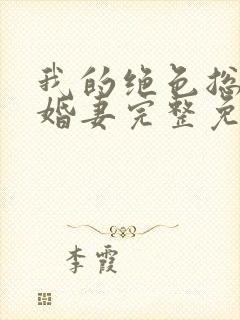 我的绝色总
婚妻完整免
李霞